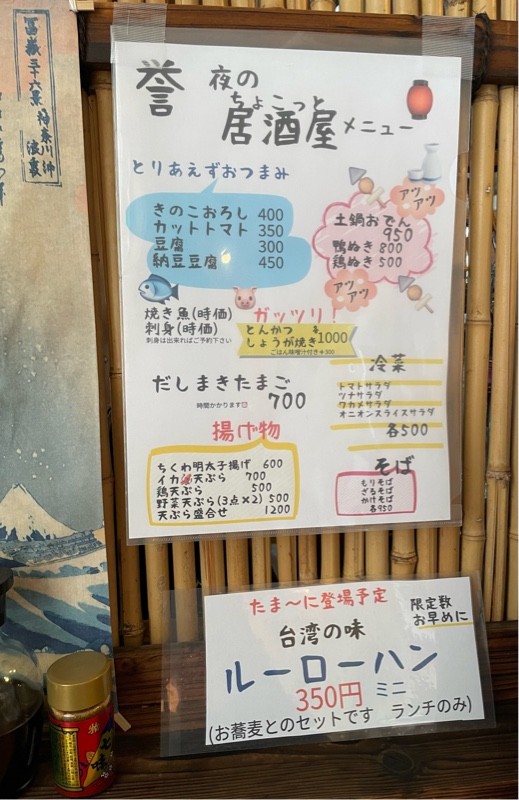 冨嶽三十六景 神奈川沖
浪裏
誉 夜の
ちょこっと
居酒屋メニュー
とりあえずおつまみ
きのこおろし 400
カットトマト 350
豆腐 300
納豆豆腐 450
アツアツ
土鍋おでん
950
鴨ぬき 800
鶏ぬき 500
アツアツ
焼き魚(時価)
刺身(時価)
刺身は出来ればご予約下さい
ガッツリ!
とんかつ
しょうが焼き 各1000
ごはん味噌汁付き+300
だしまきたまご
時間かかります
700
冷菜
トマトサラダ
ツナサラダ
ワカメサラダ
オニオンスライスサラダ
各500
揚げ物
ちくわ明太子揚げ 600
イカ天ぷら 700
鶏天ぷら 500
野菜天ぷら(3点×2) 500
天ぷら盛合せ 1200
そば
もりそば
ざるそば
かけそば
各950
たま〜に登場予定
限定数
お早めに
台湾の味
ルーローハン
350円 ミニ
(お蕎麦とのセットです ランチのみ)
七味